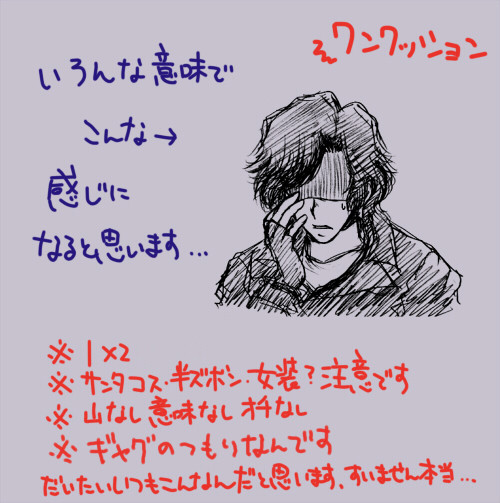 ワンクッション
いろんな意味で
こんな→
感じに
なると思います…
※1×2
※サンタコス・半ズボン・女装？注意です
※山なし意味なしオチなし
※ギャグのつもりなんです
だいたいいつもこんなんだと思います、すいません本当…